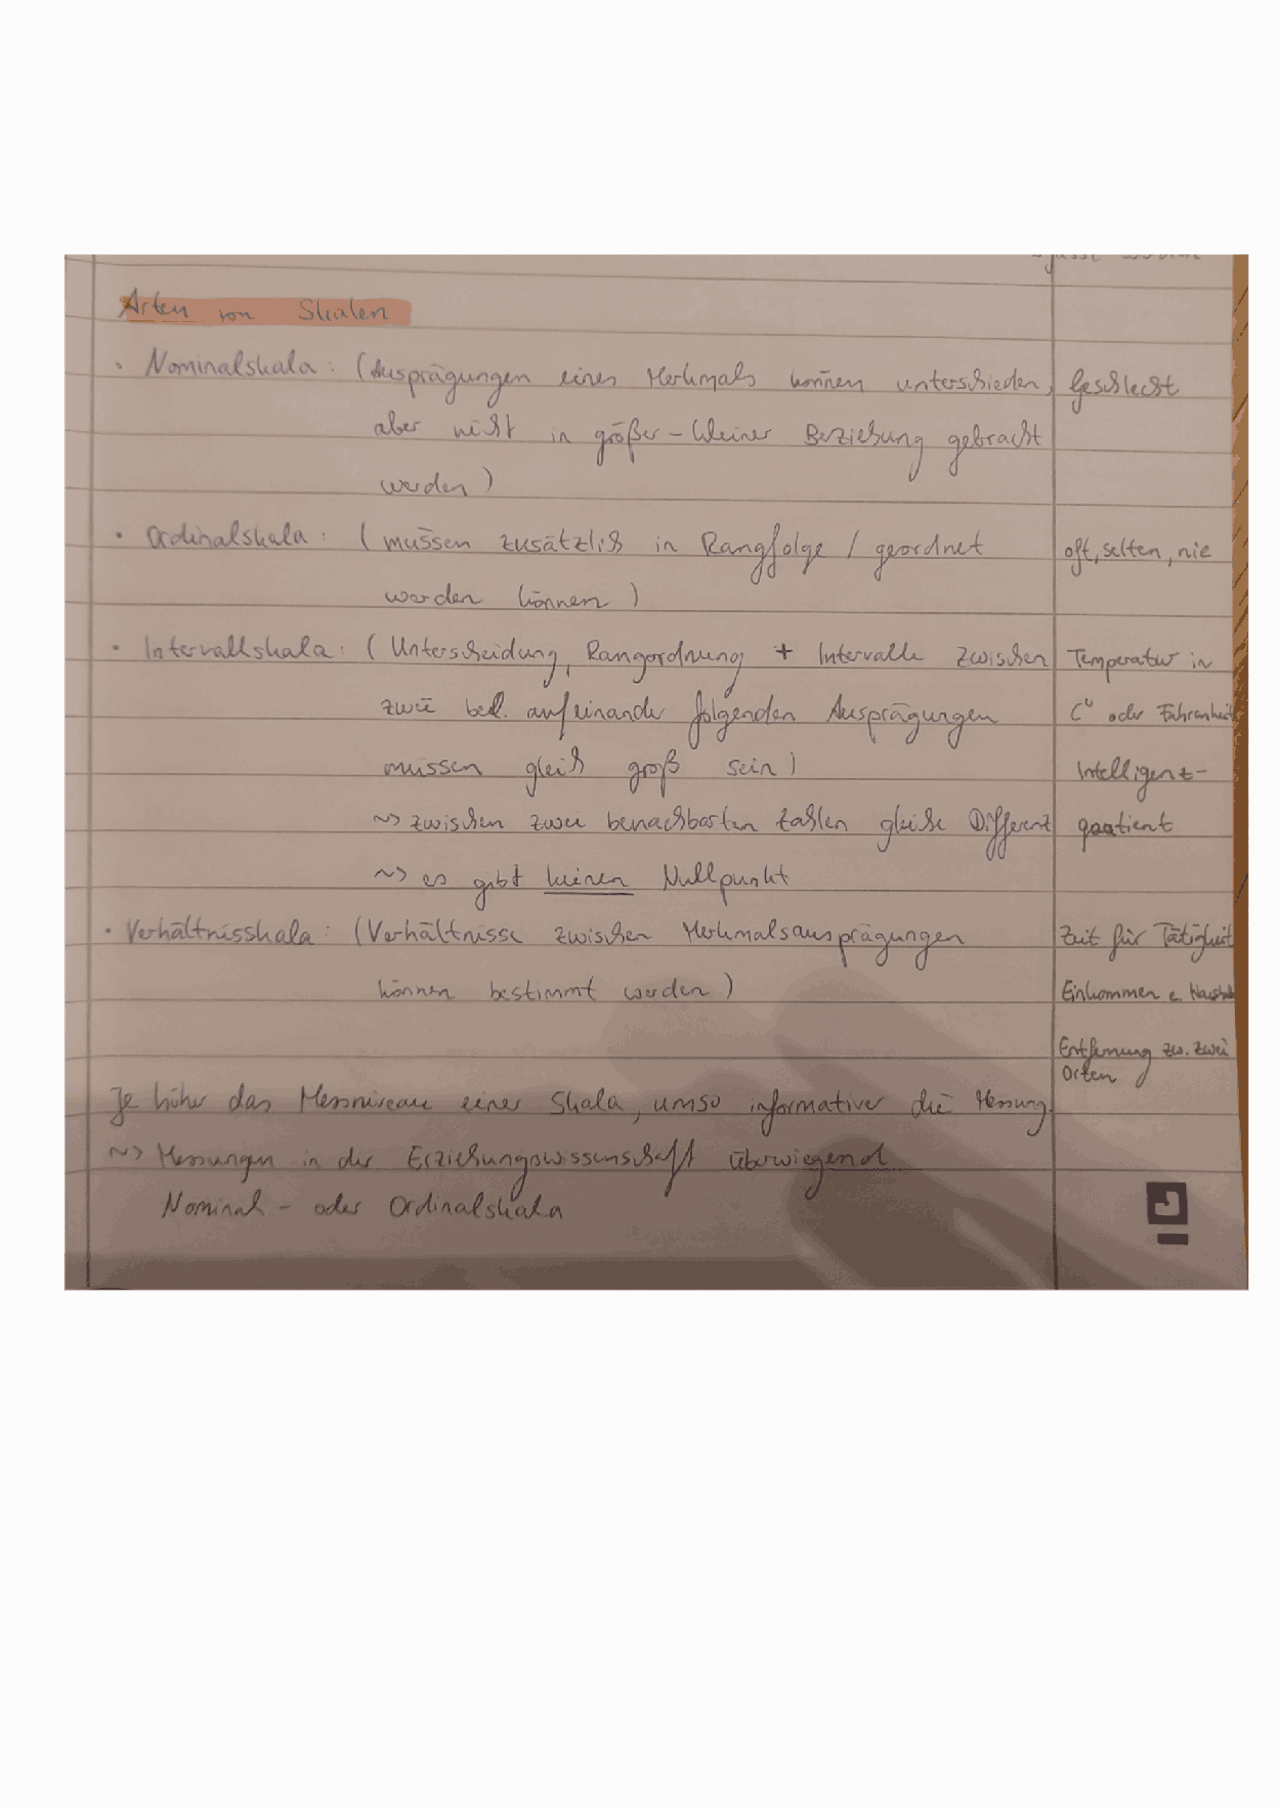 Arten von Skalen
• Nominalskala: (Ausprägungen eines Merkmals können unterschieden, Geschlecht
aber nicht in größer-kleiner Beziehung gebracht
werden)
• Ordinalskala: (müssen zusätzlich in Rangfolge / geordnet oft, selten, nie
werden können)
• Intervallskala: (Unterscheidung, Rangordnung + Intervalle zwischen Temperatur in
zwei aufeinander folgenden Ausprägungen C° oder Fahrenheit
müssen gleich groß sein) Intelligenz-
~> zwischen zwei benachbarten Zahlen gleiche Differenz quotient
~> es gibt keinen Nullpunkt
• Verhältnisskala: (Verhältnisse zwischen Merkmalsausprägungen Zeit für Tätigkeit
können bestimmt werden) Einkommen e.
Entfernung zw. zwei
Orten
Je höher das Messniveau einer Skala, umso informativer die Messung.
~> Messungen in der Erziehungswissenschaft überwiegend
Nominal- oder Ordinalskala